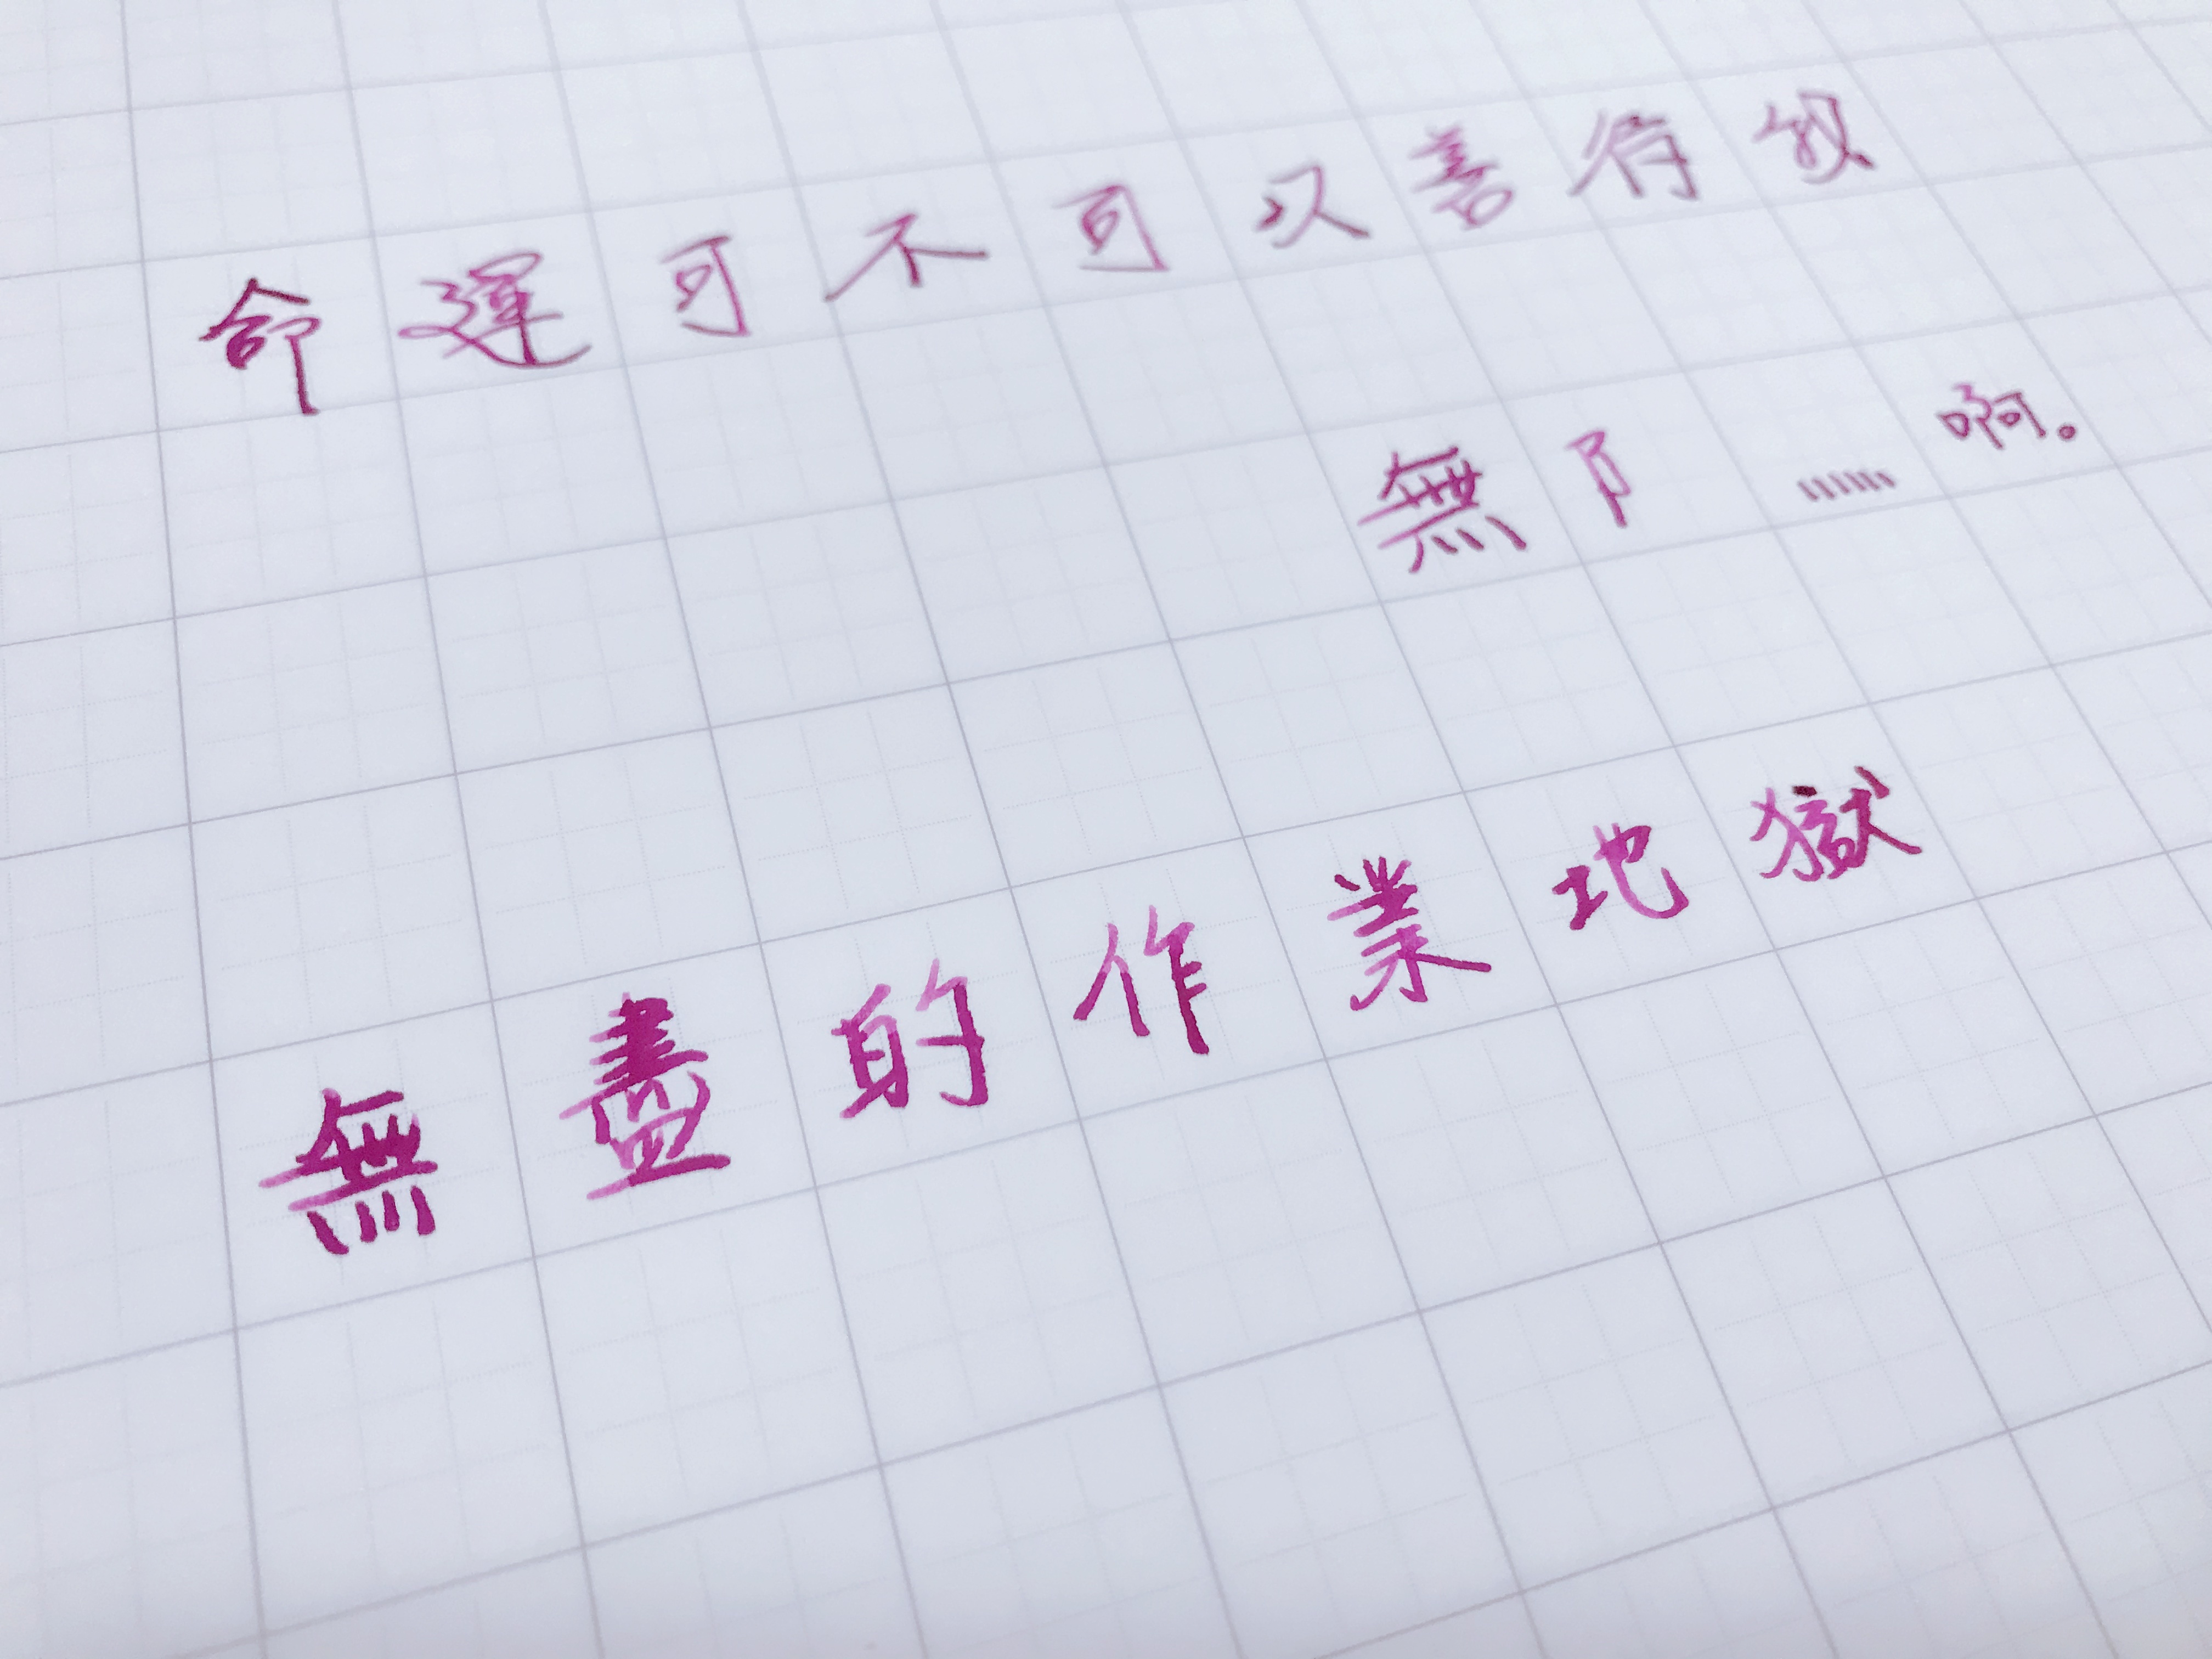 命運可不可以善待我
無阝......啊。
無盡的作業地獄